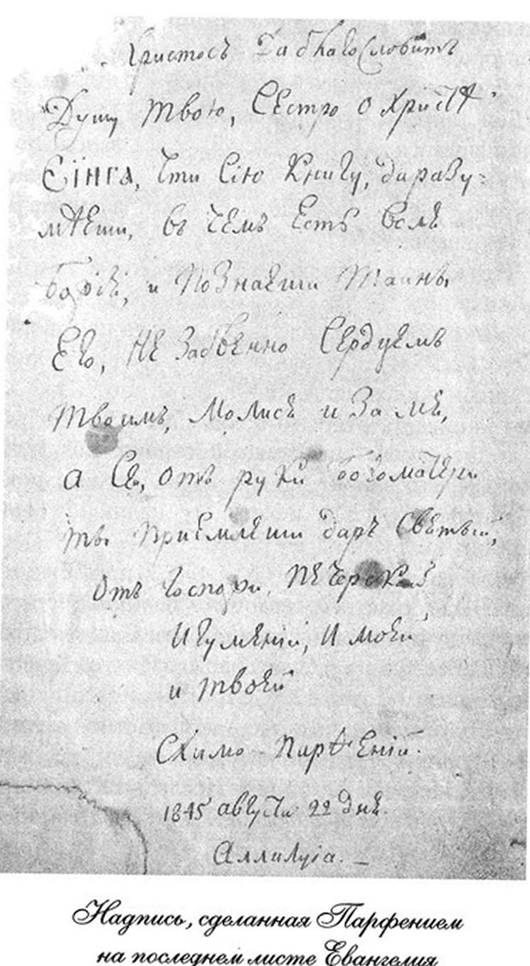 Христосъ да благословитъ
Душу твою, Сестро о Христѣ
Сiнга, Чти Сiю Книгу, да разу-
мѣеши, въ чемъ есть воля
Божiя, и познаеши тайны
Его, не забвенно Сердцемъ
твоимъ, Молись и за мя,
а Се, отъ руки богоматери
ты прiемлеши даръ Святый,
Отъ Госпожи, Печерской
Игуменiи, и моей
и твоей
Схимо-Парѳенiй.
1845 августа 22 дня.
Аллилуiа.
Надпись, сделанная Парфением
на последнем листе Евангелия